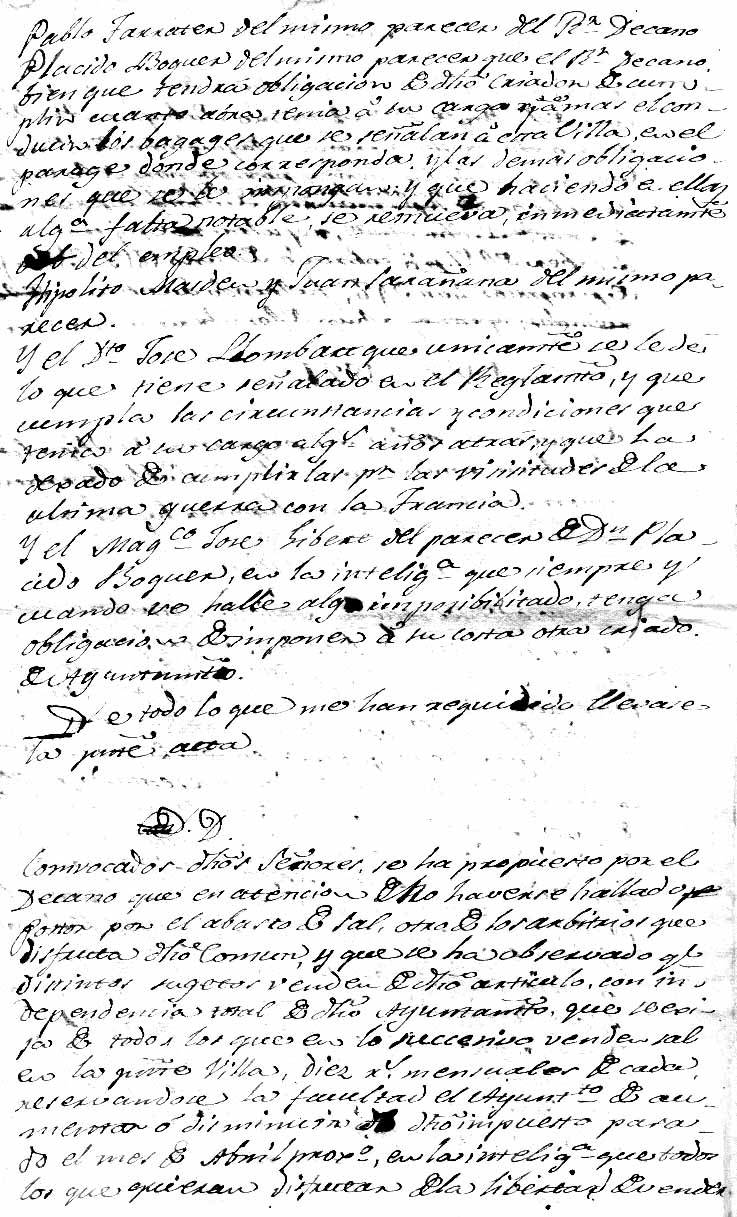 Pablo Farrater del mismo parecer del Sr. Decano
Placido Boquer del mismo parecer que el Sr. Decano,
bien que tendrá obligacion de dho. Criador de cum-
plir cuanto aóra tenia á su cargo y á mas el con-
ducir los bagages que se señalan á esta Villa, en el
parage donde corresponda, y las demas obligacio-
nes que se le y que haciendo en ellas
algª. falta notable, se remueva, inmediatamte.
del empleo.
Hipolito Maiden y Juan Sarañana del mismo pa-
recer.
Y el Dto. Jose Llombart que unicamte. se le dé
lo que tiene señalado en el Reglamto., y que
cumpla las circunstancias y condiciones que
tenia á su cargo algs. años atras, y que ha
dexado de cumplir las pr. las vicisitudes de la
ultima guerra con la Francia.
Y el Magco. Jose Gibert del parecer de Dn. Pla-
cido Boquer, en la inteligª. que siempre y
cuando se halle algo imposibilitado, tenga
obligacion de imponer á su costa otro criado
de Ayuntamto.
De todo lo que me han requirido llevase
la pnte. acta.
D. D.
Comvocados dhos. Señores, se ha propuesto por el
Decano que en atencion de no haverse hallado
postor por el abasto de sal, otro de los arbitrios que
disfruta dho. Comun, y que se ha observado qe.
distintos sugetos venden de dho. articulo, con in-
dependencia total de dho. Ayuntamto., que se exi-
ja de todos los que en lo succesivo vendan sal
en la pnte. Villa, diez rs. mensuales de cada,
reservandose la facultad el Ayuntto. de au-
mentar ó disminuir dho. impuesto pasa-
do el mes de Abril proxº., en la inteligª. que todos
los que quieran disfrutar de la libertad de vender